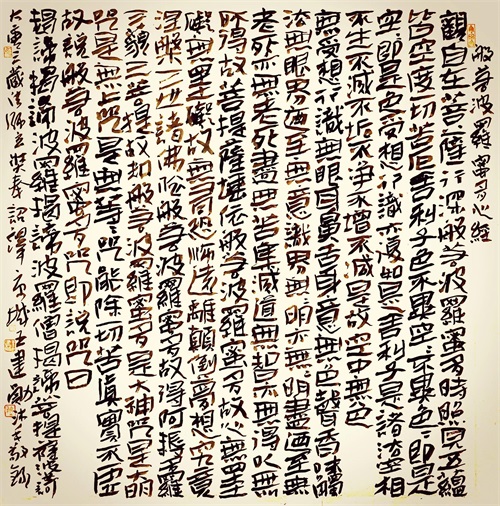 般若波羅蜜多心經
觀自在菩薩行深般若波羅蜜多時照見五蘊
皆空度一切苦厄舍利子色不異空空不異色色即是
空空即是色受想行識亦復如是舍利子是諸法空相
不生不滅不垢不淨不增不減是故空中無色
無受想行識無眼耳鼻舌身意無色聲香味觸
法無眼界乃至無意識界無無明亦無無明盡乃至無
老死亦無老死盡無苦集滅道無智亦無得以無
所得故菩提薩埵依般若波羅蜜多故心無罣
礙無罣礙故無有恐怖遠離顛倒夢想究竟
涅槃三世諸佛依般若波羅蜜多故得阿耨多羅
三藐三菩提故知般若波羅蜜多是大神咒是大明
咒是無上咒是無等等咒能除一切苦真實不虛
故說般若波羅蜜多咒即說咒曰
揭諦揭諦波羅揭諦波羅僧揭諦菩提薩婆訶
大唐三藏法師玄奘奉詔譯